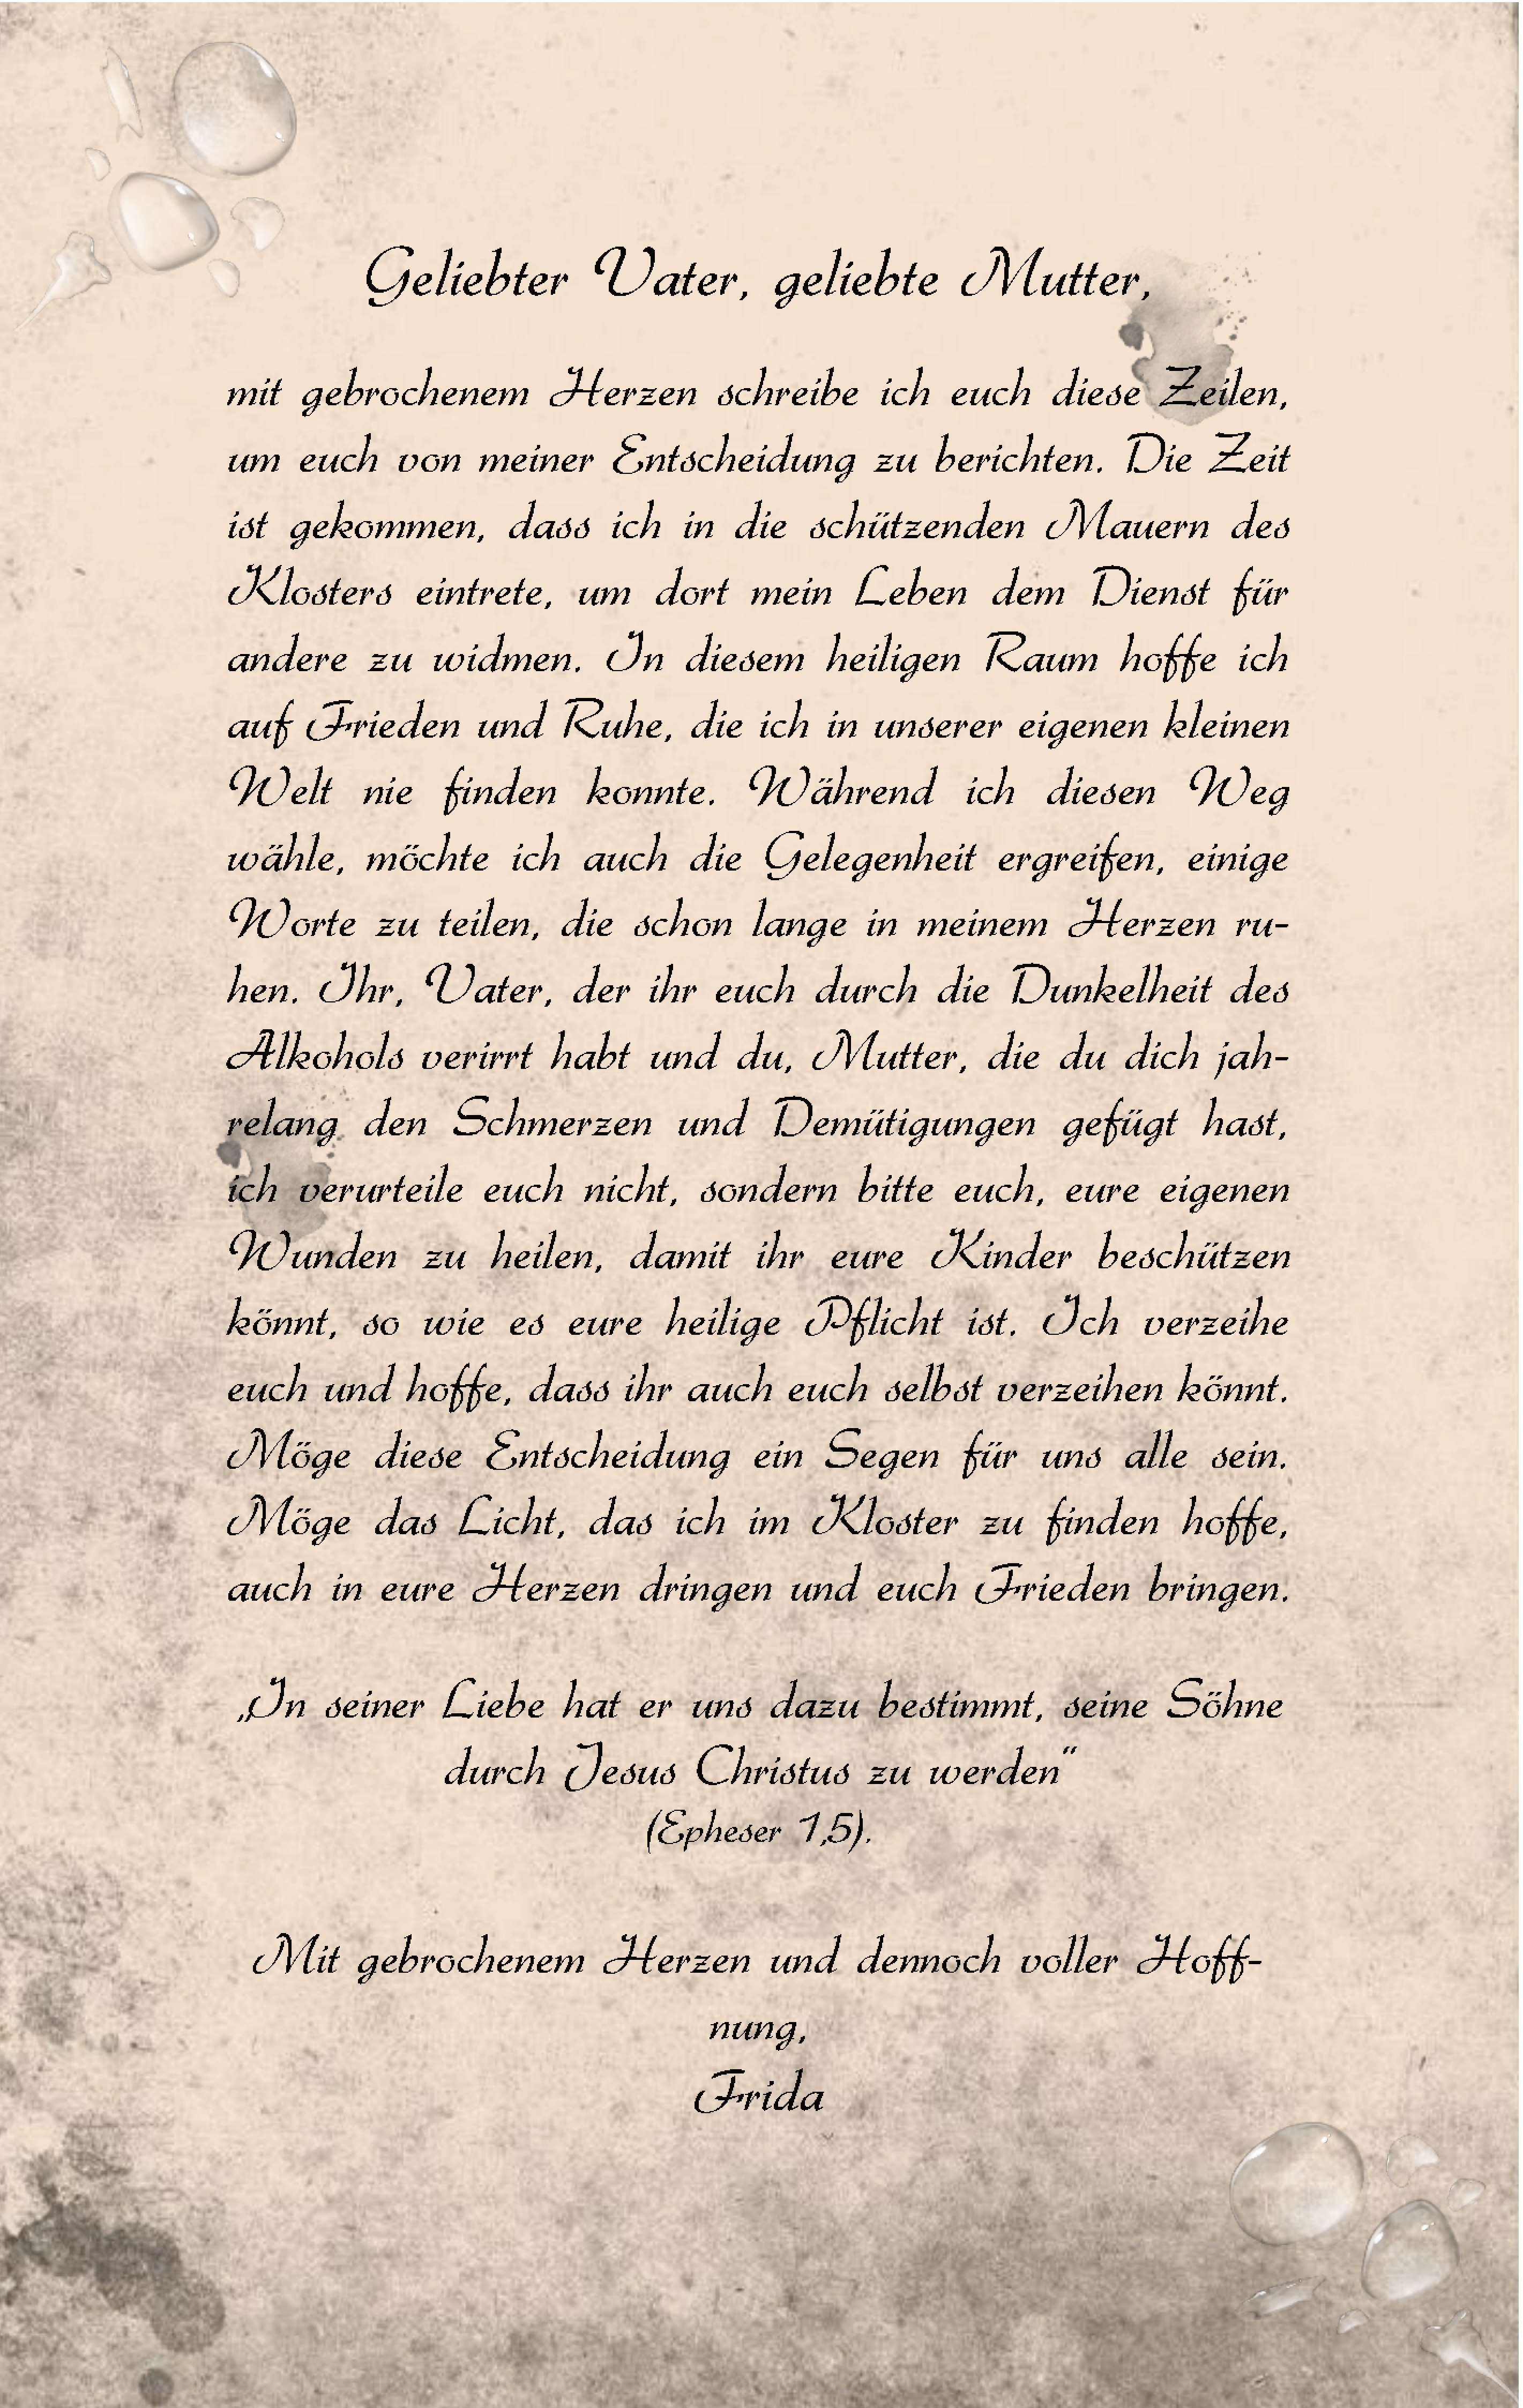 Geliebter Vater, geliebte Mutter,
mit gebrochenem Herzen schreibe ich euch diese Zeilen,
um euch von meiner Entscheidung zu berichten. Die Zeit
ist gekommen, dass ich in die schützenden Mauern des
Klosters eintrete, um dort mein Leben dem Dienst für
andere zu widmen. In diesem heiligen Raum hoffe ich
auf Frieden und Ruhe, die ich in unserer eigenen kleinen
Welt nie finden konnte. Während ich diesen Weg
wähle, möchte ich auch die Gelegenheit ergreifen, einige
Worte zu teilen, die schon lange in meinem Herzen ru-
hen. Ihr, Vater, der ihr euch durch die Dunkelheit des
Alkohols verirrt habt und du, Mutter, die du dich jah-
relang den Schmerzen und Demütigungen gefügt hast,
ich verurteile euch nicht, sondern bitte euch, eure eigenen
Wunden zu heilen, damit ihr eure Kinder beschützen
könnt, so wie es eure heilige Pflicht ist. Ich verzeihe
euch und hoffe, dass ihr auch euch selbst verzeihen könnt.
Möge diese Entscheidung ein Segen für uns alle sein.
Möge das Licht, das ich im Kloster zu finden hoffe,
auch in eure Herzen dringen und euch Frieden bringen.
„In seiner Liebe hat er uns dazu bestimmt, seine Söhne
durch Jesus Christus zu werden“
(Epheser 1,5).
Mit gebrochenem Herzen und dennoch voller Hoff-
nung,
Frida